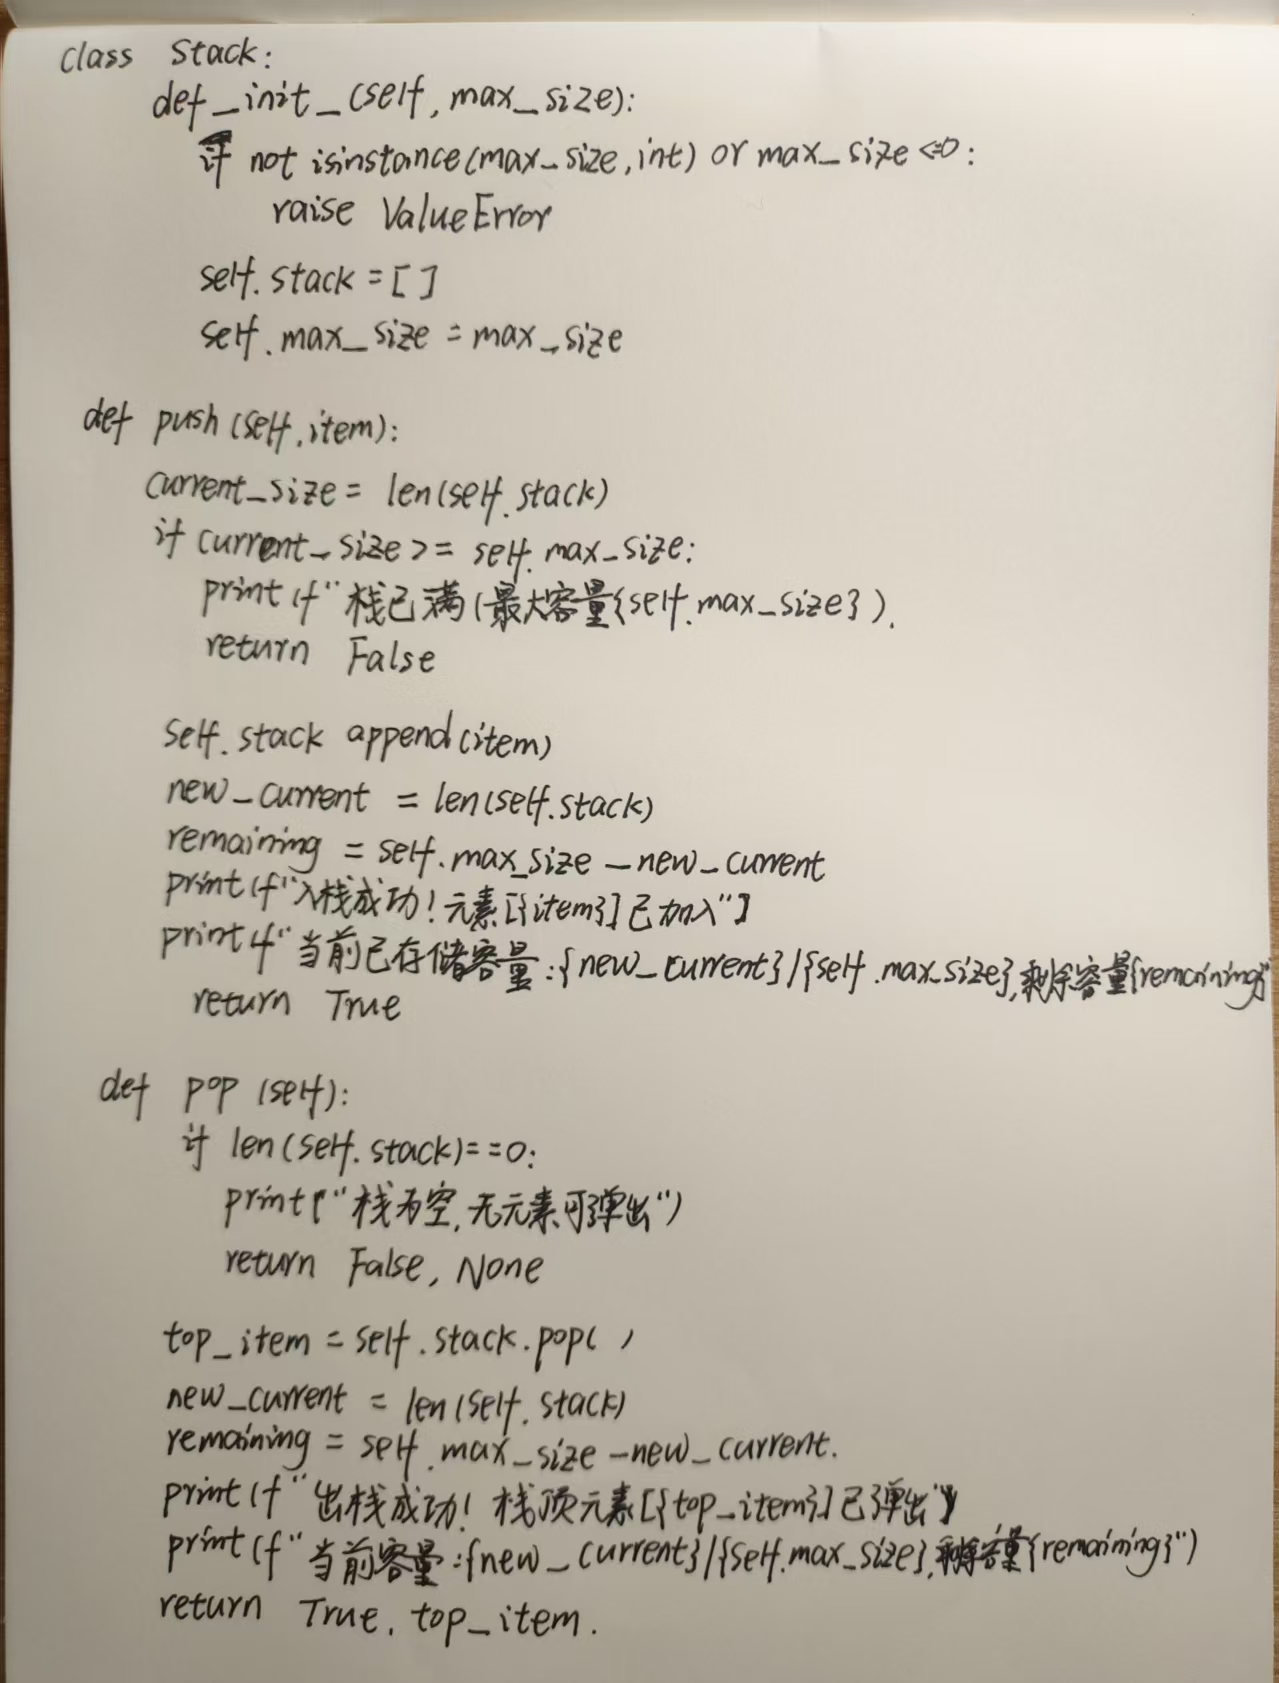 class Stack:
def _init_(self, max_size):
if not isinstance(max_size, int) or max_size <=0:
raise ValueError
self.stack = []
self.max_size = max_size
def push (self, item):
current_size = len(self.stack)
if current_size >= self.max_size:
print(f"栈已满(最大容量{self.max_size}).
return False
self.stack append(item)
new_current = len(self.stack)
remaining = self.max_size - new_current
print(f"入栈成功!元素[{item}]已加入")
print f"当前已存储容量:{new_current}/{self.max_size},剩余容量{remaining}"
return True
def pop (self):
if len(self.stack)==0:
print("栈为空,无元素可弹出")
return False, None
top_item = self.stack.pop( )
new_current = len(self.stack)
remaining = self.max_size - new_current.
print(f"出栈成功!栈顶元素[{top_item}]已弹出")
print(f"当前容量:{new_current}/{self.max_size},剩余容量{remaining}")
return True, top_item.